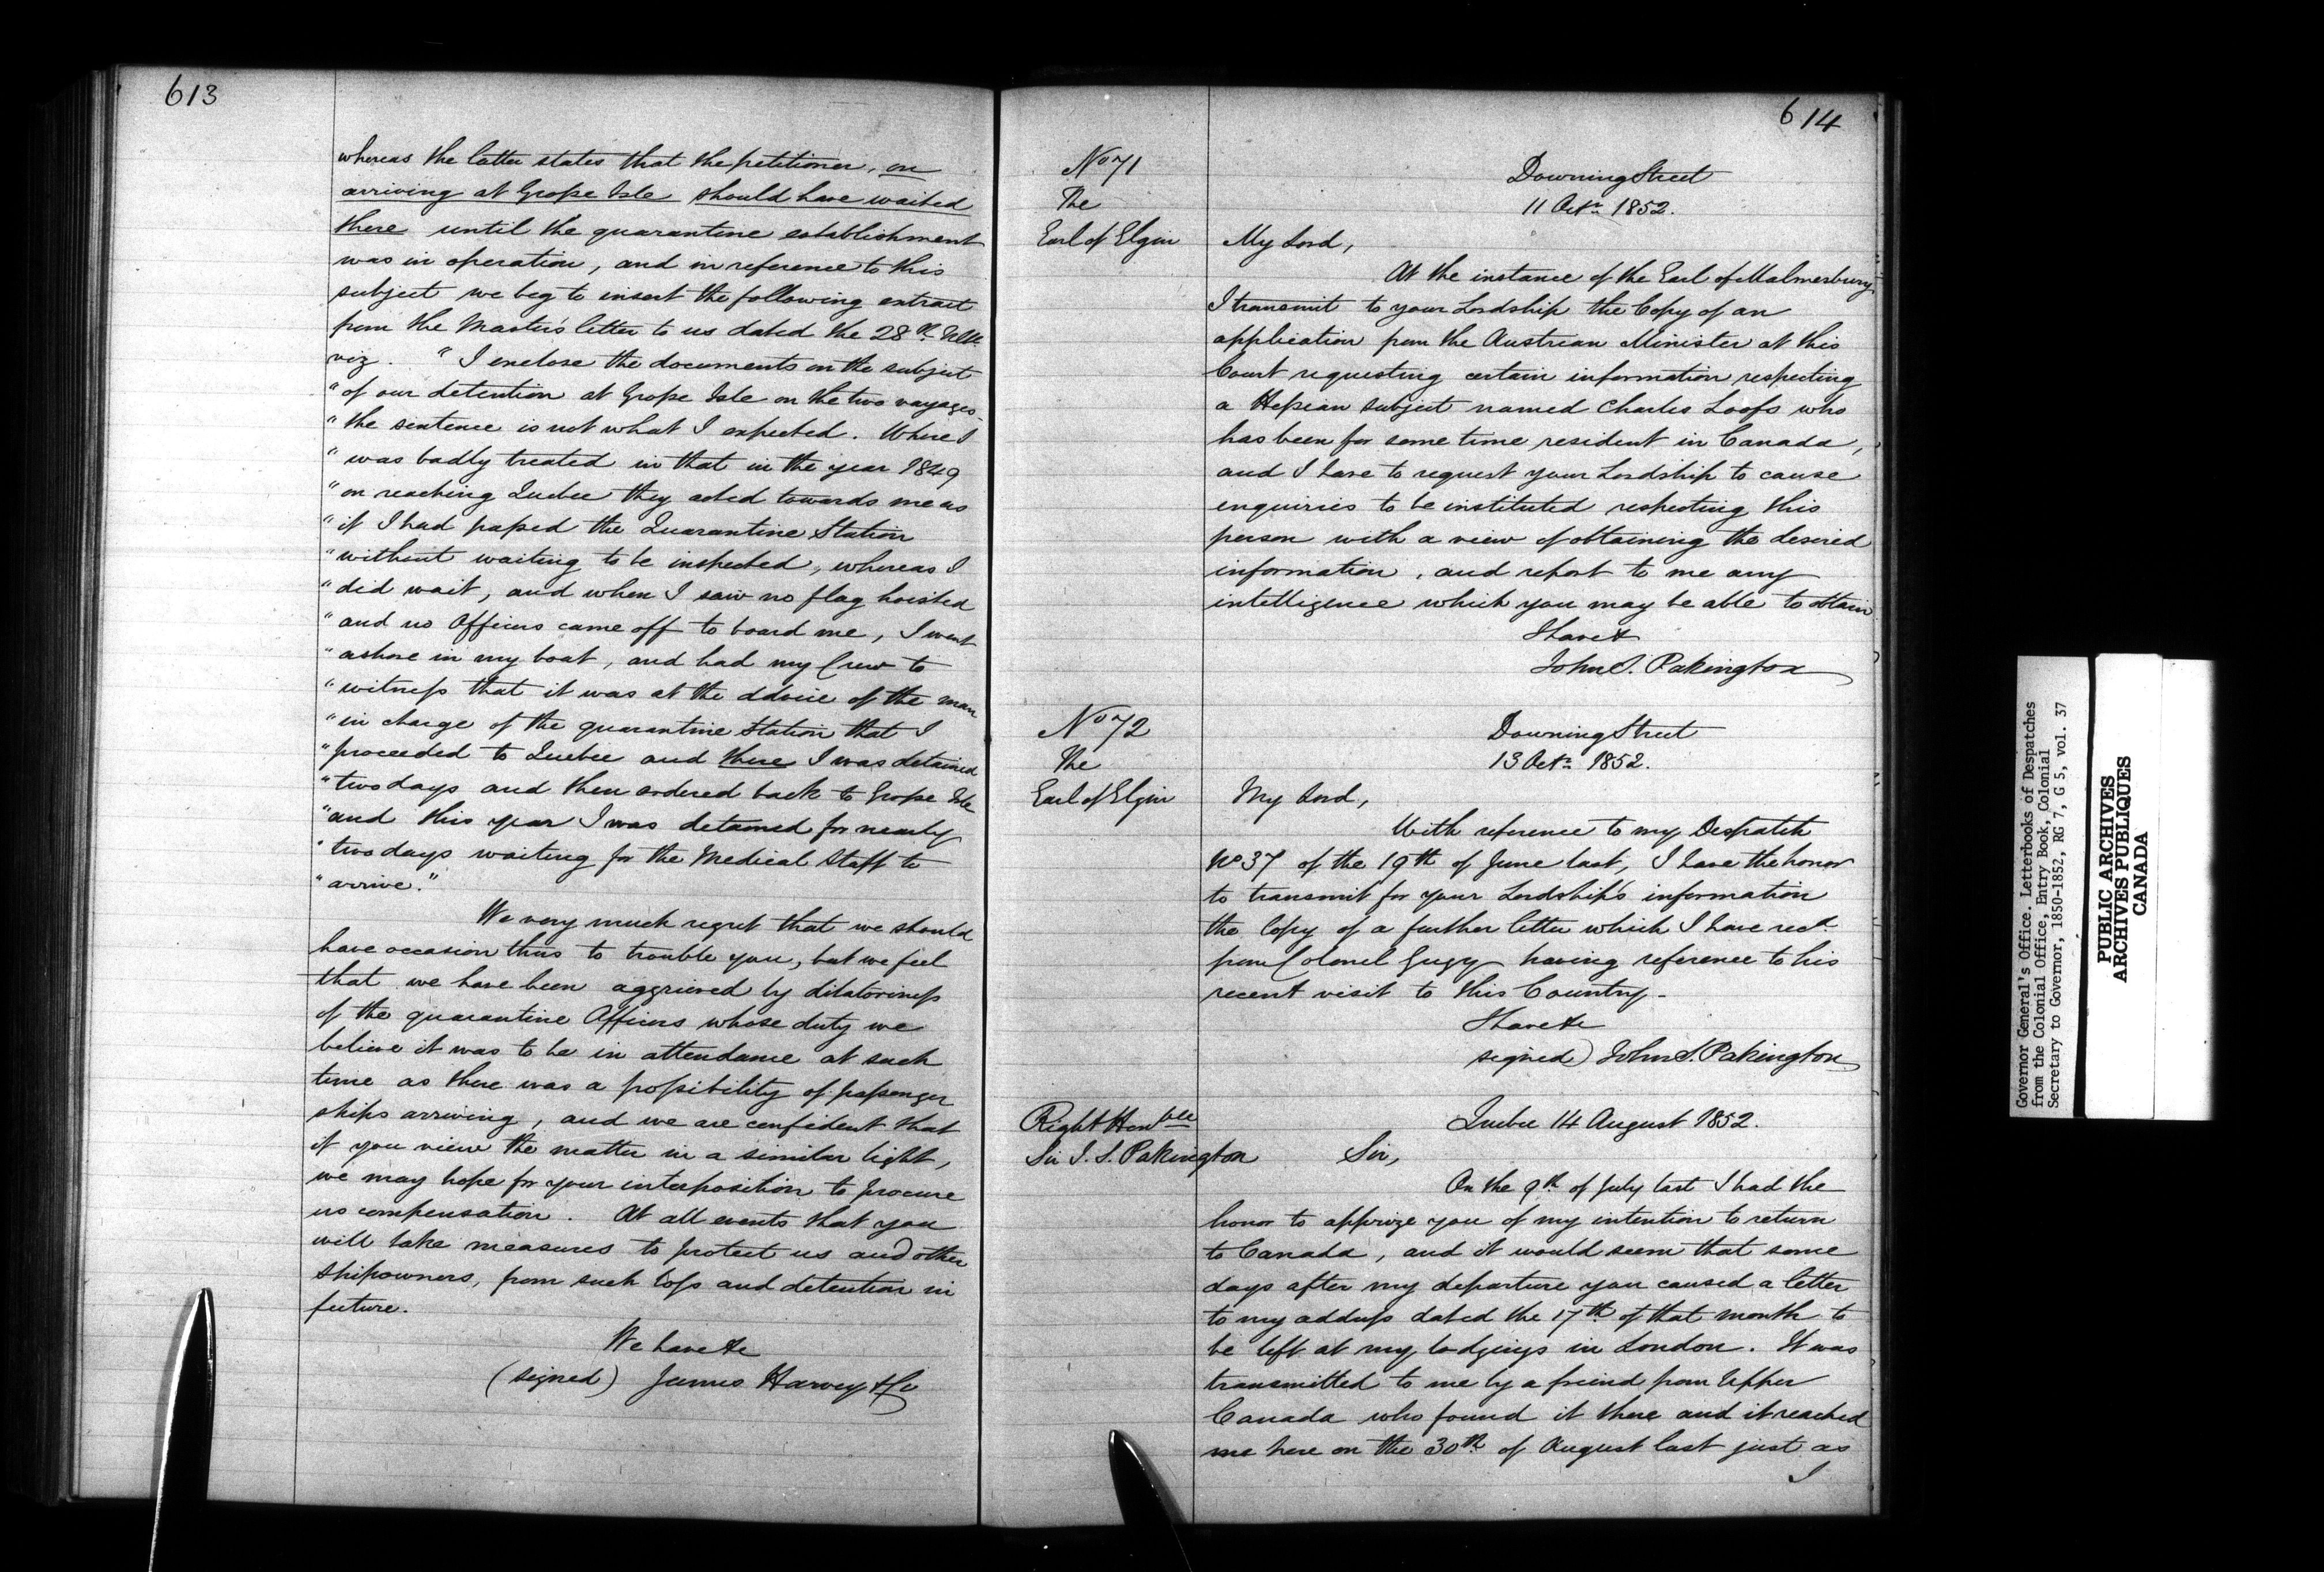 613
whereas the latter states that the petitioner, on
arriving at Grosse Isle should have waited
there until the quarantine establishment
was in operation, and in reference to this
subject we beg to insert the following extract
from the Master's letter to us dated the 28th Ulto
viz. "I enclose the documents on the subject
"of our detention at Grosse Isle on the two voyages,
"the sentence is not what I expected. Where I
"was badly treated in that in the year 1849
"on reaching Quebec they acted towards me as
"if I had passed the Quarantine Station
"without waiting to be inspected, whereas I
"did wait, and when I saw no flag hoisted
"and no Officers came off to board me, I went
"ashore in my boat, and had my Crew to
"witness that it was at the advice of the man
"in charge of the quarantine Station that I
"proceeded to Quebec and there I was detained
"two days and then ordered back to Grosse Isle
"and this year I was detained for nearly
"two days waiting for the Medical Staff to
"arrive."
We very much regret that we should
have occasion thus to trouble you, but we feel
that we have been aggrieved by dilatoriness
of the quarantine Officers whose duty we
believe it was to be in attendance at such
time as there was a possibility of passenger
ships arriving, and we are confident that
if you view the matter in a similar light,
we may hope for your interposition to procure
us compensation. At all events that you
will take measures to protect us and other
Shipowners, from such loss and detention in
future.
We have &c
(signed) James Harvey & Co
614
No 71
The
Earl of Elgin
Downing Street
11 Octr 1852.
My Lord,
At the instance of the Earl of Malmesbury
I transmit to your Lordship the Copy of an
application from the Austrian Minister at this
Court requesting certain information respecting
a Hessian subject named Charles Loofs who
has been for some time resident in Canada,
and I have to request your Lordship to cause
enquiries to be instituted respecting this
person with a view of obtaining the desired
information, and report to me any
intelligence which you may be able to obtain
I have &
John S. Pakington
No 72
The
Earl of Elgin
Downing Street
13 Octr 1852.
My Lord,
With reference to my Despatch
No 37 of the 19th of June last, I have the honor
to transmit for your Lordship's information
the Copy of a further letter which I have recd
from Colonel Gugy having reference to his
recent visit to this Country.
I have &c
signed) John S. Pakington
Right Honble
Sir J. S. Pakington
Quebec 14 August 1852.
Sir,
On the 9th of July last I had the
honor to apprize you of my intention to return
to Canada, and it would seem that some
days after my departure you caused a letter
to my address dated the 17th of that month to
be left at my lodgings in London. It was
transmitted to me by a friend from Upper
Canada who found it there and it reached
me here on the 30th of August last just as
I
Governor General's Office. Letterbooks of Despatches
from the Colonial Office, Entry Book, Colonial
Secretary to Governor, 1850-1852, RG 7, G 5, vol. 37
PUBLIC ARCHIVES
ARCHIVES PUBLIQUES
CANADA